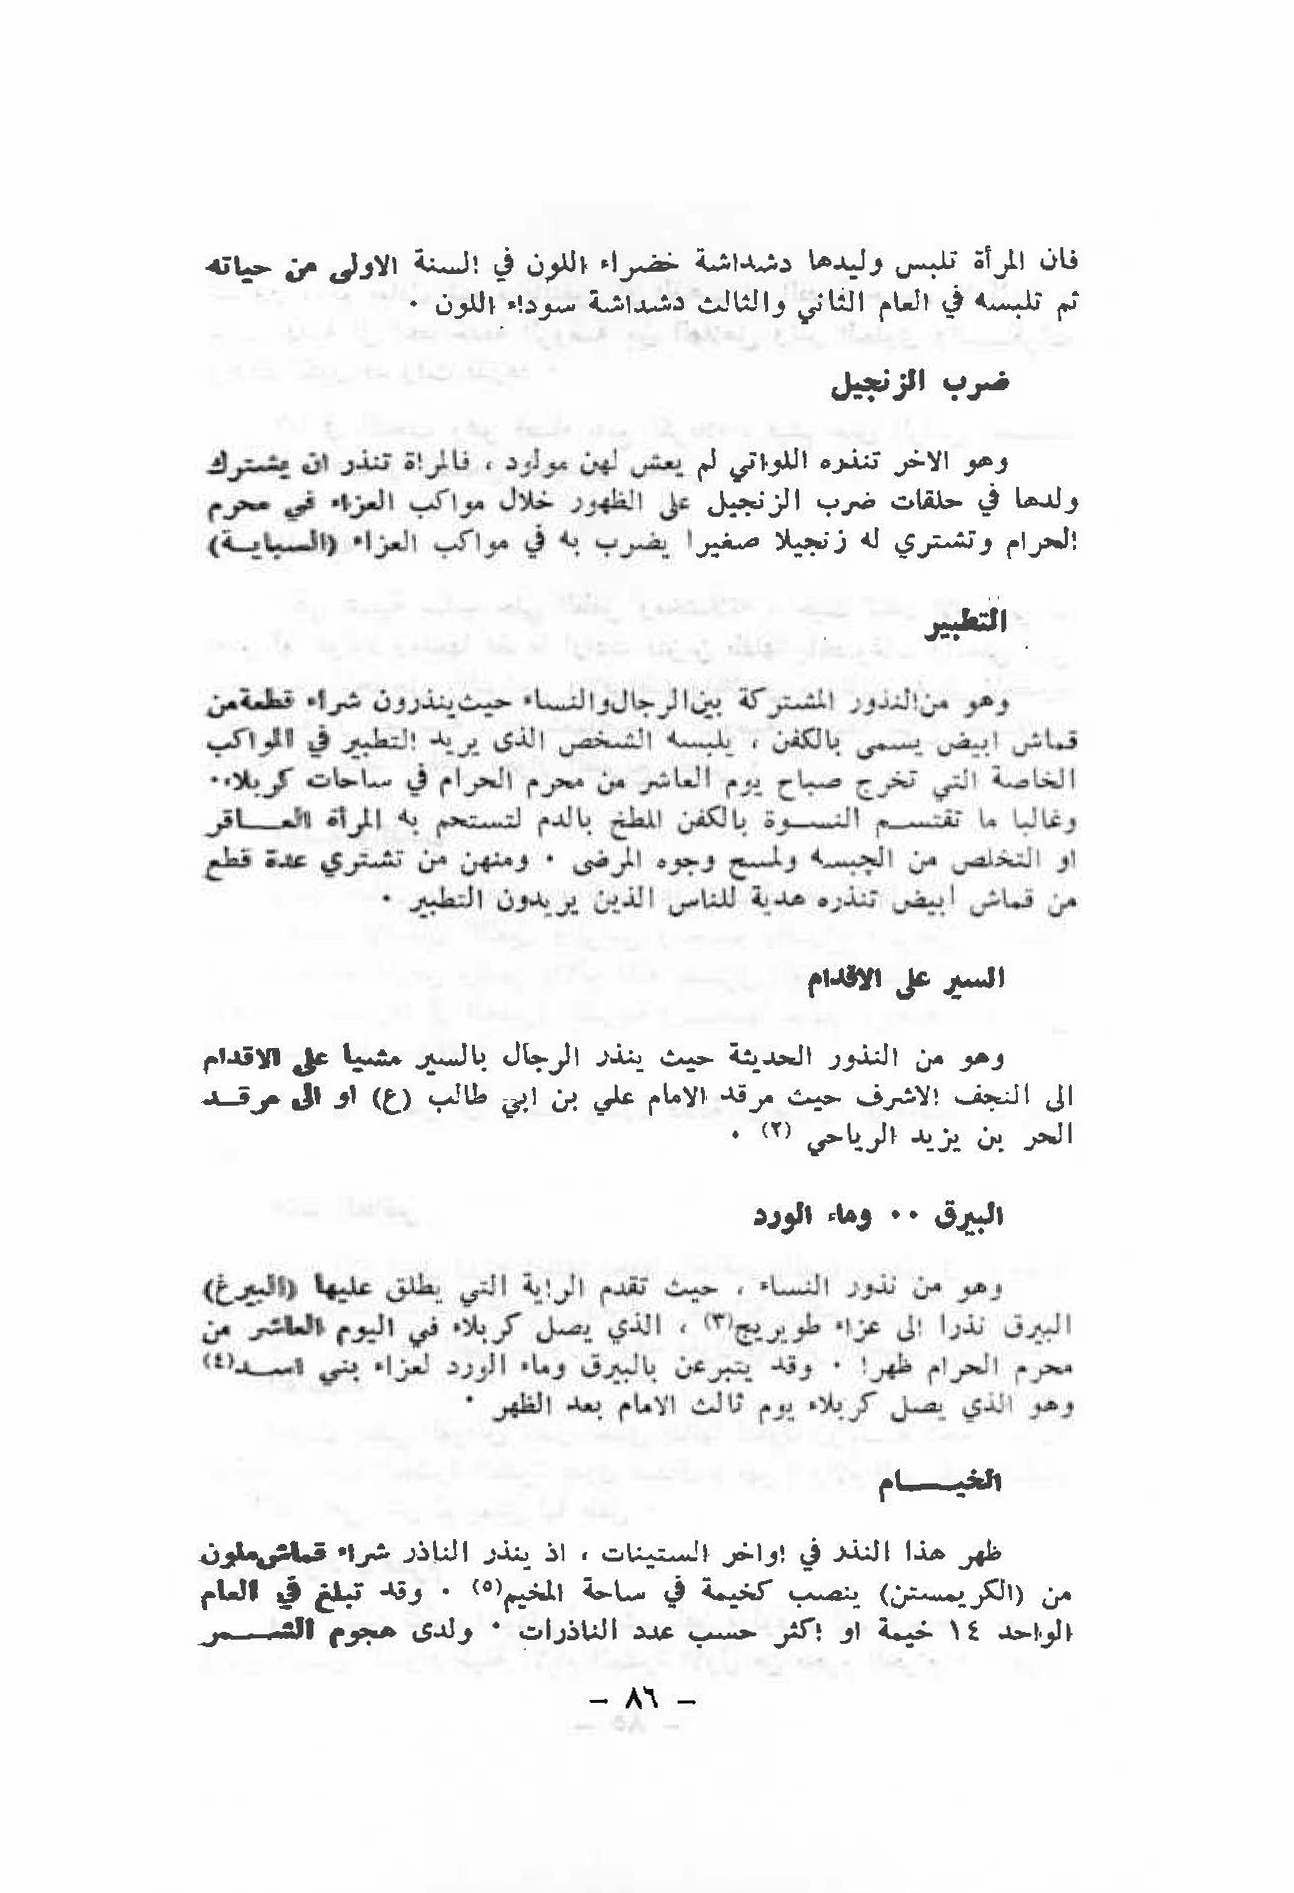 فان المرأة تلبس وليدها دشداشة خضراء اللون في السنة الاولى من حياته
ثم تلبسه في العام الثاني والثالث دشداشة سوداء اللون ٠
ضرب الزنجيل
وهو الاخر تنذره اللواتي لم يعش لهن مولود ، فالمرأة تنذر ان يشترك
ولدها في حلقات ضرب الزنجيل على الظهور خلال مواكب العزاء في محرم
الحرام وتشتري له زنجيلا صغيرا يضرب به في مواكب العزاء (السبايـة)
التطبير
وهو من النذور المشتركة بين الرجال والنساء حيث ينذرون شراء قطعة من
قماش ابيض يسمى بالكفن ، يلبسه الشخص الذى يريد التطبير في المواكب
الخاصة التي تخرج صباح يوم العاشر من محرم الحرام في ساحات كربلاء٠
وغالبا ما تقتسـم النسـوة بالكفن الملطخ بالدم لتستحم به المرأة العـاقر
او التخلص من الچبسه ولمسح وجوه المرضى ٠ ومنهن من تشتري عدة قطع
من قماش أبيض تنذره هدية للناس الذين يريدون التطبير ٠
السير على الاقدام
وهو من النذور الحديثة حيث ينذر الرجال بالسير مشيا على الاقدام
الى النجف الاشرف حيث مرقد الامام علي بن ابي طالب (ع) او الى مرقـد
الحر بن يزيد الرياحي (٢) ٠
البيرق ٠٠ وماء الورد
وهو من نذور النساء ، حيث تقدم الراية التي يطلق عليها (البيرغ)
البيرق نذرا الى عزاء طويريج(٣) ، الذي يصل كربلاء في اليوم العاشر من
محرم الحرام ظهرا ٠ وقد يتبرعن بالبيرق وماء الورد لعزاء بني اسـد(٤)
وهو الذي يصل كربلاء يوم ثالث الامام بعد الظهر ٠
الخيـــام
ظهر هذا النذر في اواخر الستينات ، اذ ينذر الناذر شراء قماش ملون
من (الكريمستن) ينصب كخيمة في ساحة المخيم(٥) ٠ وقد تبلغ في العام
الواحد ١٤ خيمة او اكثر حسب عدد الناذرات ٠ ولدى هجوم الشـــمر
– ٨٦ –